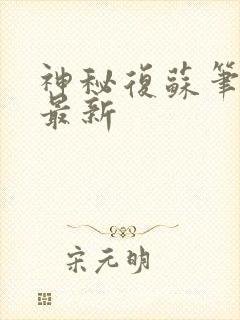 神秘復蘇筆
最新
宋元明